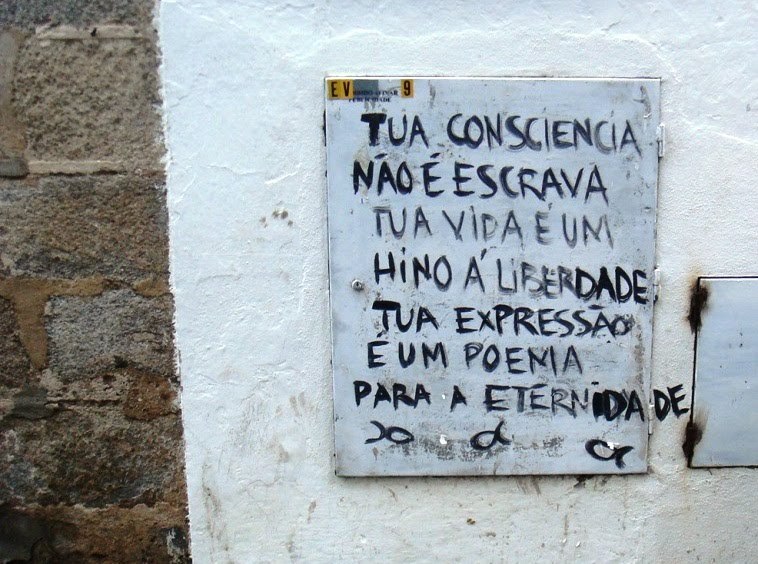 EV 9
PUBLICIDADE
TUA CONSCIENCIA
NÃO É ESCRAVA
TUA VIDA É UM
HINO Á LIBERDADE
TUA EXPRESSÃO
É UM POEMA
PARA A ETERNIDADE